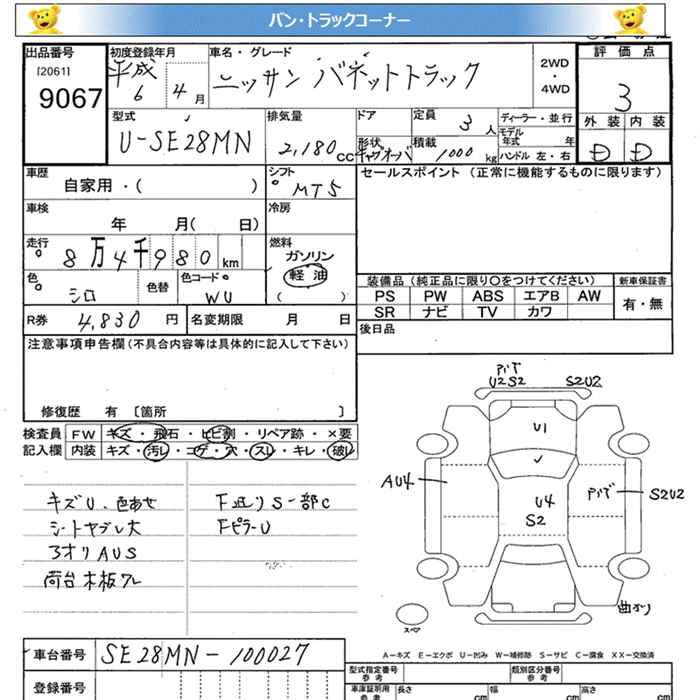 バン・トラックコーナー
出品番号 初度登録年月 車名・グレード 2WD・4WD 評価点
[2061]
9067 平成 6 4月 ニッサン バネットトラック 3
外装 内装
D D
型式 排気量 ドア 定員 3人 ディーラー・並行
U-SE28MN 2,180cc 形状 キャブオーバ 積載 1000kg モデル年式 年
ハンドル 左・右
車歴 シフト セールスポイント (正常に機能するものに限ります)
自家用・( ) MT5
車検 冷房
年 月( 日)
走行 燃料
8万4千980km ガソリン
軽油
( )
色 色替 色コード
シロ WU
装備品 (純正品に限り〇をつけてください) 新車保証書
PS PW ABS エアB AW 有・無
SR ナビ TV カワ
R券 4,830円 名変期限 月 日 後日品
注意事項申告欄 (不具合内容等は具体的に記入して下さい)
修復歴 有 [箇所 ]
検査員 FW キズ・飛石・ヒビ割・リペア跡・×要
記入欄 内装 キズ・汚レ・コゲ・穴・スレ・キレ・破レ
キズU、色あせ
シートヤブレ大
3オリAUS
荷台木板ワレ
F廻りS一部C
FピラーU
U2S2 S2U2
U1
AU4
U4
S2
S2U2
曲がり
スペア
A−キズ E−エクボ U−凹み W−補修跡 S−サビ C−腐食 XX−交換済
車台番号 SE28MN-100027
登録番号
型式指定番号 参考 類別区分番号 参考
車庫証明用 参考 長さ cm 幅 cm 高さ cm